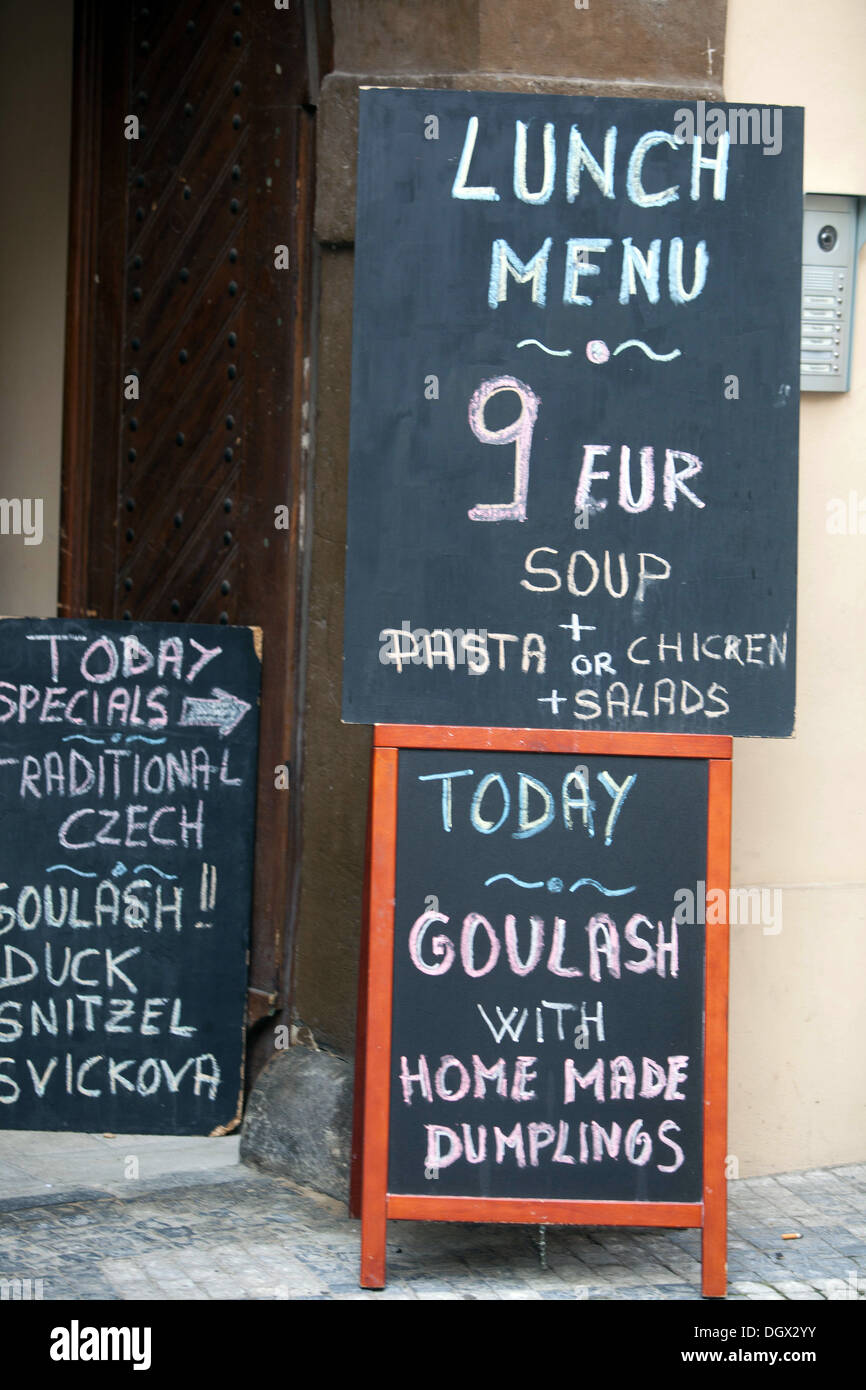 LUNCH
MENU
9 EUR
SOUP
+
PASTA OR CHICKEN
+ SALADS
TODAY
SPECIALS
TRADITIONAL
CZECH
GOULASH!!
DUCK
SNITZEL
SVICKOVA
TODAY
GOULASH
WITH
HOME MADE
DUMPLINGS
alamy
Image ID: DGX2YY
www.alamy.com